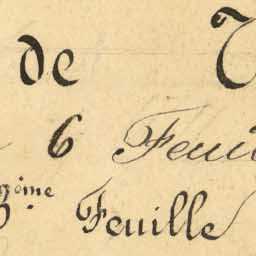 de V
6 Feui
ème Feuille